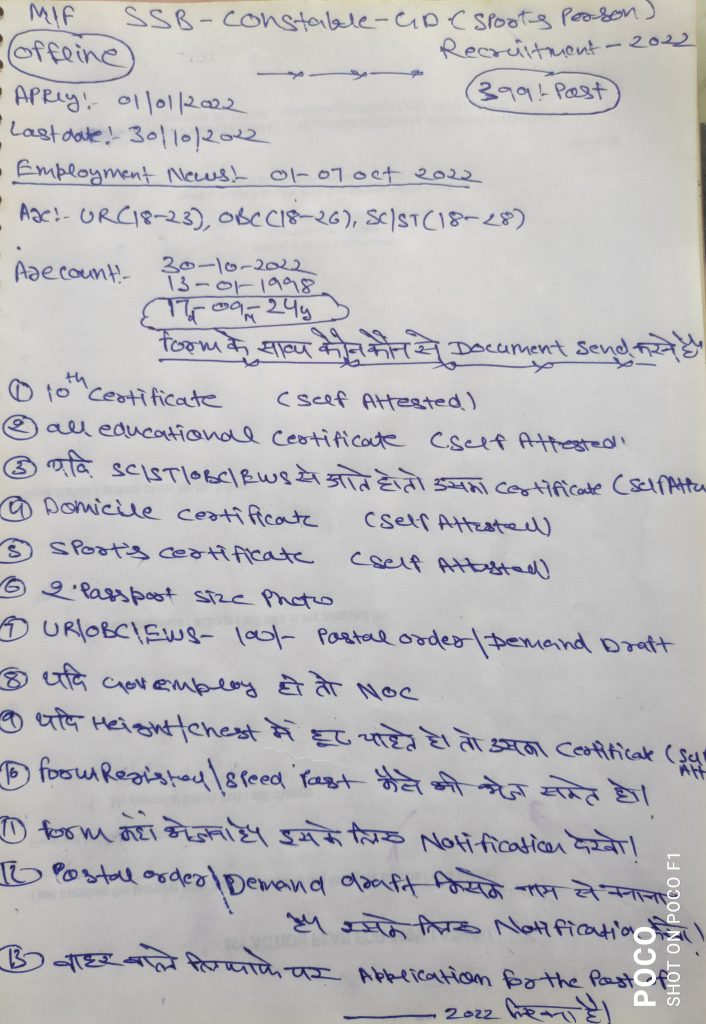 M/F SSB - Constable - GD (Sport's Person)
offline Recruitment - 2022
399!- Post
APPly:- 01/01/2022
Last date:- 30/10/2022
Employment News:- 01-07 oct 2022
Age:- UR(18-23), OBC(18-26), SC/ST(18-28)
Age count:- 30-10-2022
13-01-1998
17d-09m-24y
form के साथ कौन कौन से Document send करने है
① 10th Certificate (self Attested)
② all educational Certificate (self Attested)
③ यदि SC/ST/OBC/EWS से आते हो तो उसका Certificate (self Atte
④ Domicile certificate (self Attested)
⑤ Sport's certificate (self Attested)
⑥ 2 Passport size Photo
⑦ UR/OBC/EWS- 100/- Postal order/Demand Draft
⑧ यदि Gov employ हो तो NOC
⑨ यदि Height/Chest में छूट चाहते हो तो उसका Certificate (Self Att
⑩ form Registed/Speed Post कैसे भी भेज सकते हो।
⑪ form कहाँ भेजना है। इसके लिए Notification देखो।
12 Postal order/Demand draft किसके नाम से बनाना
है। उसके लिए Notification देखो।
⑬ बाहर वाले लिफाफे पर Application for the Post of
2022 लिखना है।
POCO
SHOT ON POCO F1